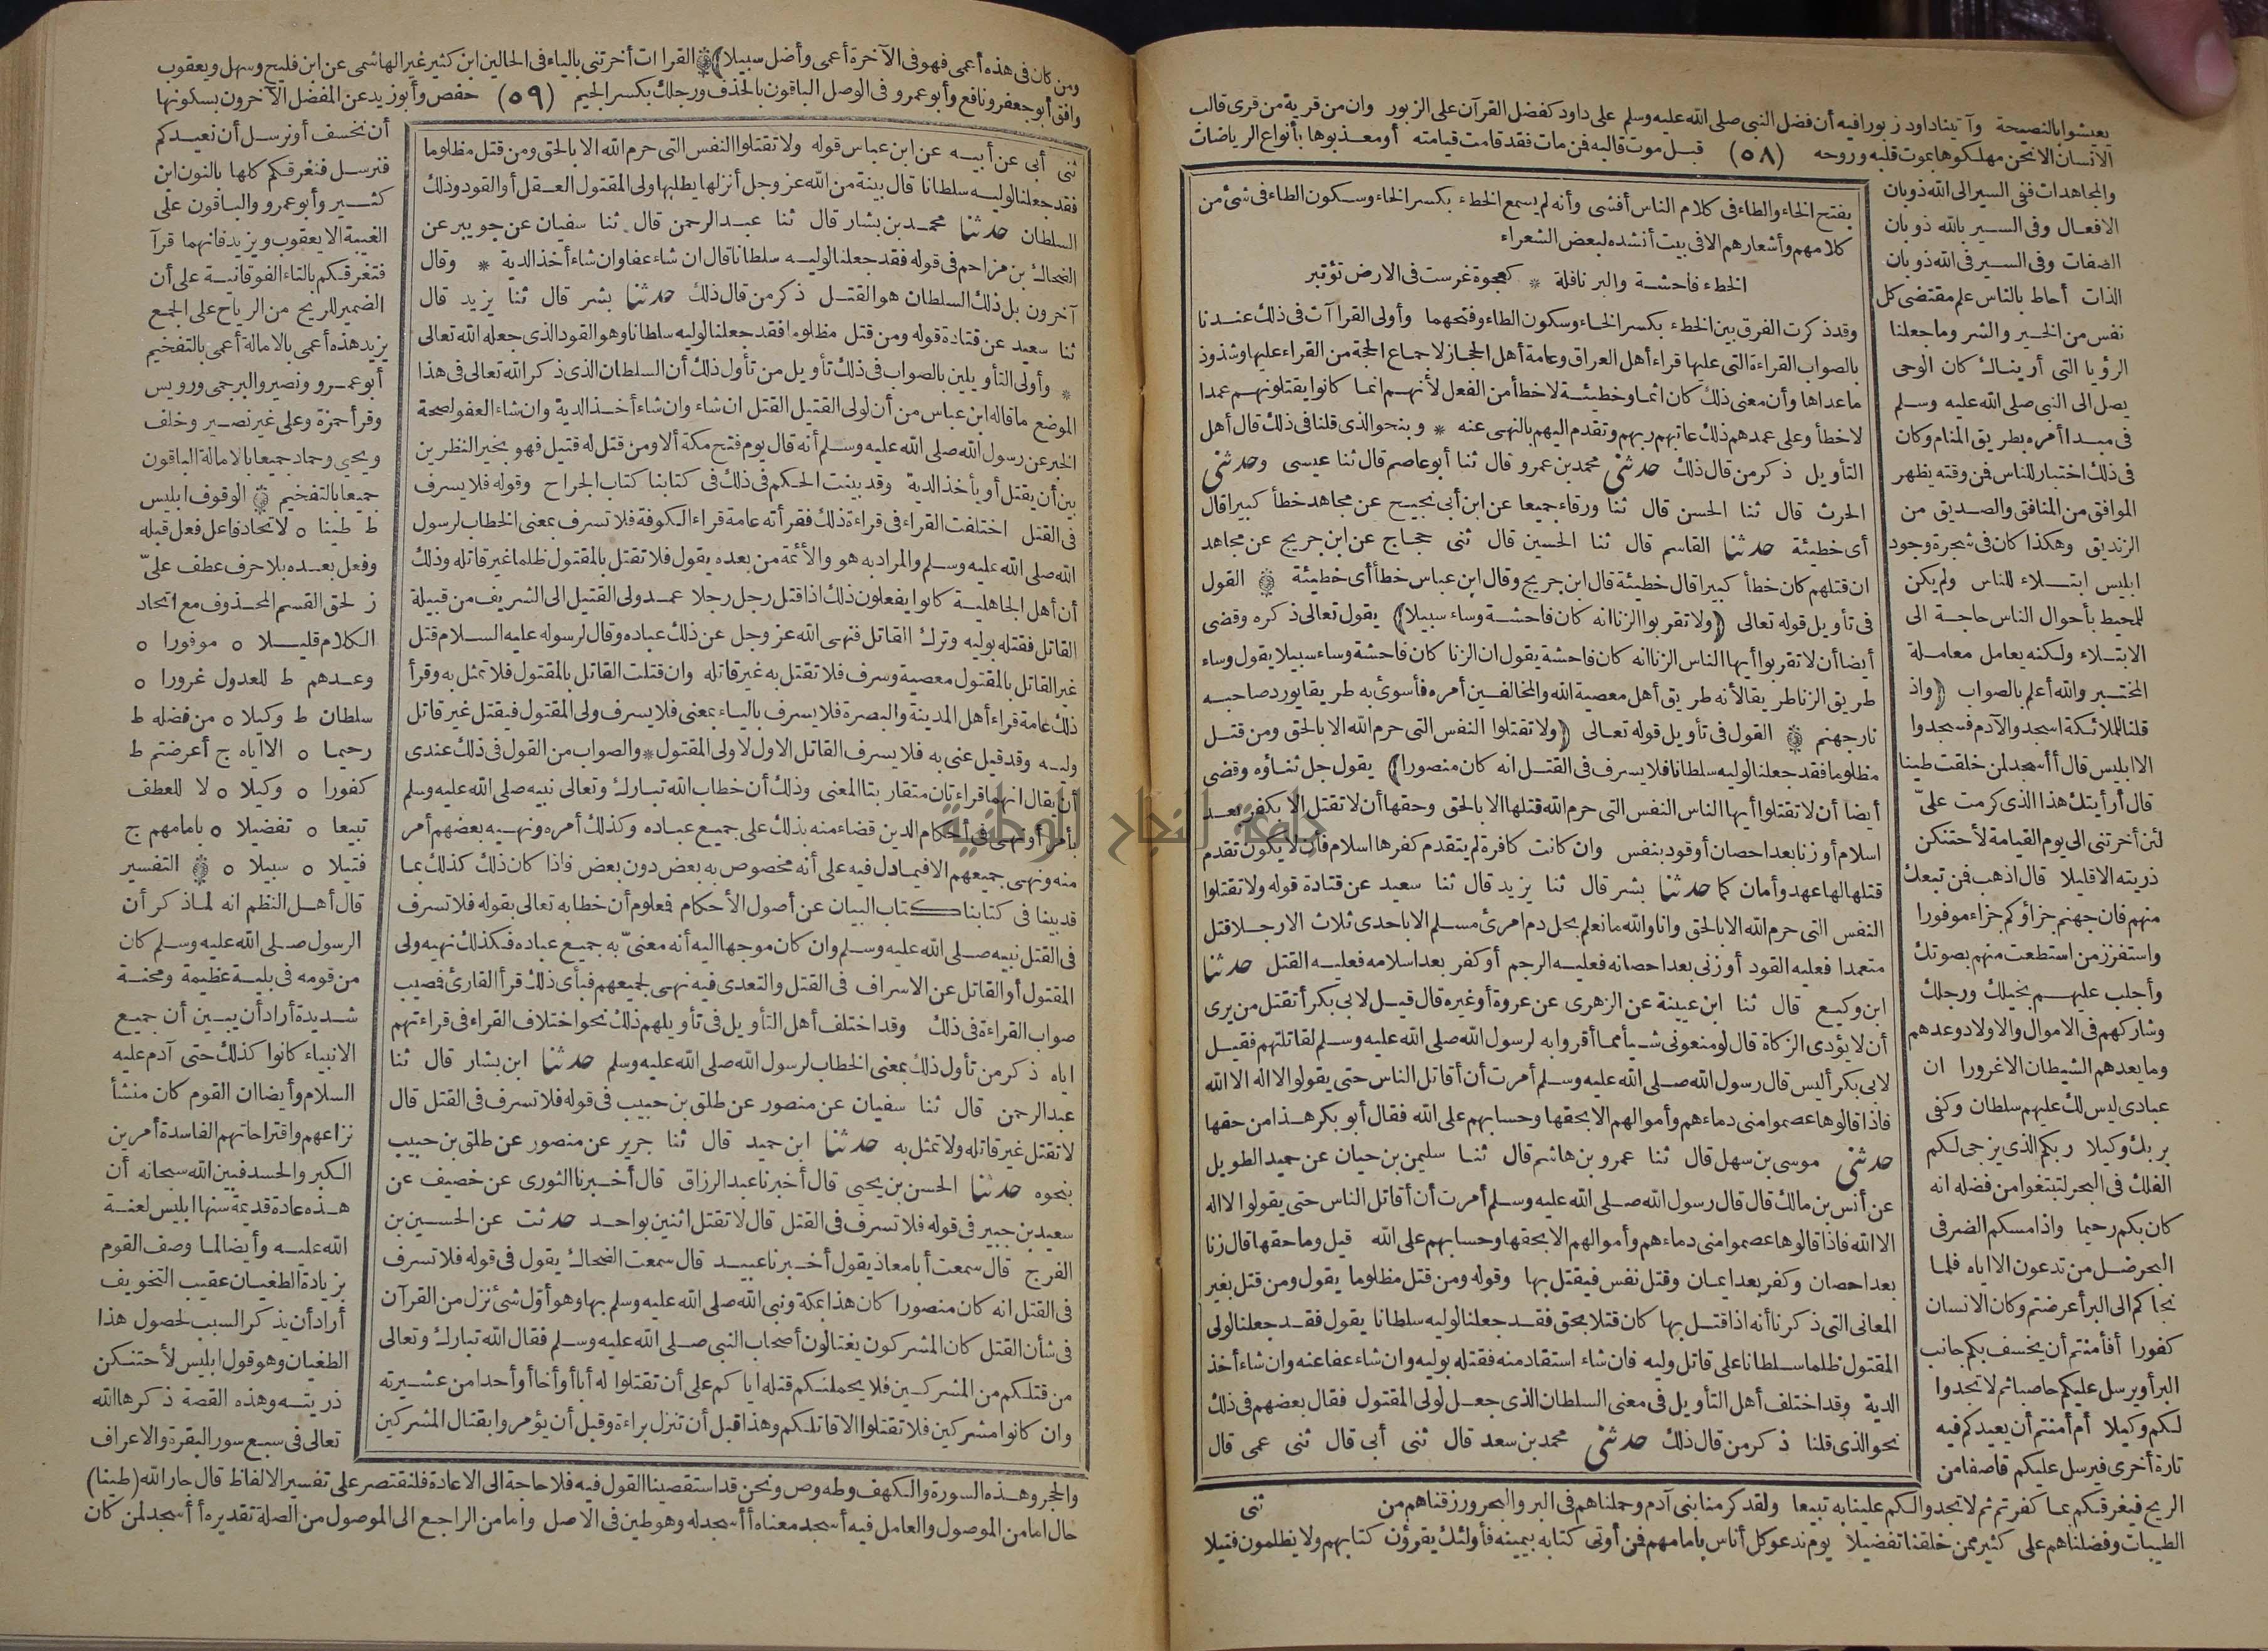 يعيشوا بالنصيحة وآتينا داود زبورا فيه أن فضل النبي صلى الله عليه وسلم على داود كفضل القرآن على الزبور وان من قرية من قرى قالب
الانسان الا نحن مهلكوها بموت قلبه وروحه (٥٨) قبل موت قالبه فمن مات فقد قامت قيامته أو معذبوها بأنواع الرياضات
والمجاهدات ففي السير الى الله ذوبان
الافعال وفى السير بالله ذوبان
الصفات وفى السير فى الله ذوبان
الذات أحاط بالناس علم مقتضى كل
نفس من الخير والشر وما جعلنا
الرؤيا التى أريناك كان الوحى
يصل الى النبي صلى الله عليه وسلم
فى مبدا أمره بطريق المنام وكان
فى ذلك اختبار للناس فمن وقته يظهر
الموافق من المنافق والصديق من
الزنديق وهكذا كان فى شجرة وجود
ابليس ابتلاء للناس ولم يكن
للمحيط بأحوال الناس حاجة الى
الابتلاء ولكنه يعامل معاملة
المختبر والله أعلم بالصواب (واذ
قلنا للملائكة اسجدوا لآدم فسجدوا
الا ابليس قال أأسجد لمن خلقت طينا
قال أرأيتك هذا الذى كرمت علىّ
لئن أخرتنى الى يوم القيامة لأحتنكن
ذريته الا قليلا قال اذهب فمن تبعك
منهم فان جهنم جزاؤكم جزاء موفورا
واستفزز من استطعت منهم بصوتك
وأجلب عليهم بخيلك ورجلك
وشاركهم فى الاموال والاولاد وعدهم
وما يعدهم الشيطان الا غرورا ان
عبادى ليس لك عليهم سلطان وكفى
بربك وكيلا ربكم الذى يزجى لكم
الفلك فى البحر لتبتغوا من فضله انه
كان بكم رحيما واذا مسكم الضر فى
البحر ضل من تدعون الا اياه فلما
نجاكم الى البر أعرضتم وكان الانسان
كفورا أفأمنتم أن يخسف بكم جانب
البر أو يرسل عليكم حاصبا ثم لا تجدوا
لكم وكيلا أم أمنتم أن يعيدكم فيه
تارة أخرى فيرسل عليكم قاصفا من
الريح فيغرقكم بما كفرتم ثم لا تجدوا لكم علينا به تبيعا ولقد كرمنا بنى آدم وحملناهم فى البر والبحر ورزقناهم من
الطيبات وفضلناهم على كثير ممن خلقنا تفضيلا يوم ندعو كل أناس بامامهم فمن أوتى كتابه بيمينه فأولئك يقرؤن كتابهم ولا يظلمون فتيلا
بفتح الخاء والطاء فى كلام الناس أفشى وأنه لم يسمع الخطء بكسر الخاء وسكون الطاء فى شئ من
كلامهم وأشعارهم الا فى بيت أنشده لبعض الشعراء
الخطء فاحشة والبر نافلة * كعجوة غرست فى الارض تؤتبر
وقد ذكرت الفرق بين الخطء بكسر الخاء وسكون الطاء وفتحهما وأولى القراآت فى ذلك عندنا
بالصواب القراءة التى عليها قراء أهل العراق وعامة أهل الحجاز لاجماع الحجة من القراء عليها وشذوذ
ما عداها وأن معنى ذلك كان اثما وخطيئة لا خطأ من الفعل لأنهم انما كانوا يقتلونهم عمدا
لا خطأ وعلى عمدهم ذلك عاتبهم ربهم وتقدم اليهم بالنهى عنه * وبنحو الذى قلنا فى ذلك قال أهل
التأويل ذكر من قال ذلك حدثنى محمد بن عمرو قال ثنا أبو عاصم قال ثنا عيسى وحدثنى
الحرث قال ثنا الحسن قال ثنا ورقاء جميعا عن ابن أبى نجيح عن مجاهد خطأ كبيرا قال
أى خطيئة حدثنا القاسم قال ثنا الحسين قال ثنى حجاج عن ابن جريج عن مجاهد
ان قتلهم كان خطأ كبيرا قال خطيئة قال ابن جريج وقال ابن عباس خطأ أى خطيئة القول
فى تأويل قوله تعالى (ولا تقربوا الزنا انه كان فاحشة وساء سبيلا) يقول تعالى ذكره وقضى
أيضا أن لا تقربوا أيها الناس الزنا انه كان فاحشة يقول ان الزنا كان فاحشة وساء سبيلا يقول وساء
طريق الزنا طريقا لأنه طريق أهل معصية الله والمخالفين أمره فأسوئ به طريقا يورد صاحبه
نار جهنم القول فى تأويل قوله تعالى (ولا تقتلوا النفس التى حرم الله الا بالحق ومن قتل
مظلوما فقد جعلنا لوليه سلطانا فلا يسرف فى القتل انه كان منصورا) يقول جل ثناؤه وقضى
أيضا أن لا تقتلوا أيها الناس النفس التى حرم الله قتلها الا بالحق وحقها أن لا تقتل الا بكفر بعد
اسلام أو زنا بعد احصان أو قود بنفس وان كانت كافرة لم يتقدم كفرها اسلام فأن لا يكون تقدم
قتلها لها عهد وأمان كما حدثنا بشر قال ثنا يزيد قال ثنا سعيد عن قتادة قوله ولا تقتلوا
النفس التى حرم الله الا بالحق وانا والله ما نعلم بحل دم امرئ مسلم الا باحدى ثلاث الا رجلا قتل
متعمدا فعليه القود أو زنى بعد احصانه فعليه الرجم أو كفر بعد اسلامه فعليه القتل حدثنا
ابن وكيع قال ثنا ابن عيينة عن الزهرى عن عروة أو غيره قال قيل لابى بكر أتقتل من يرى
أن لا يؤدى الزكاة قال لو منعونى شيأ مما أقروا به لرسول الله صلى الله عليه وسلم لقاتلتهم فقيل
لابى بكر أليس قال رسول الله صلى الله عليه وسلم أمرت أن أقاتل الناس حتى يقولوا لا اله الا الله
فاذا قالوها عصموا منى دماءهم وأموالهم الا بحقها وحسابهم على الله فقال أبو بكر هذا من حقها
حدثنى موسى بن سهل قال ثنا عمرو بن هاشم قال ثنا سليمن بن حيان عن حميد الطويل
عن أنس بن مالك قال قال رسول الله صلى الله عليه وسلم أمرت أن أقاتل الناس حتى يقولوا لا اله
الا الله فاذا قالوها عصموا منى دماءهم وأموالهم الا بحقها وحسابهم على الله قيل وما حقها قال زنا
بعد احصان وكفر بعد ايمان وقتل نفس فيقتل بها وقوله ومن قتل مظلوما يقول ومن قتل بغير
المعانى التى ذكرنا أنه اذا قتل بها كان قتلا بحق فقد جعلنا لوليه سلطانا يقول فقد جعلنا لولى
المقتول ظلما سلطانا على قاتل وليه فان شاء استقاد منه فقتله بوليه وان شاء عفا عنه وان شاء أخذ
الدية وقد اختلف أهل التأويل فى معنى السلطان الذى جعل لولى المقتول فقال بعضهم فى ذلك
نحو الذى قلنا ذكر من قال ذلك حدثنى محمد بن سعد قال ثنى أبى قال ثنى عمى قال
ثنى
ومن كان فى هذه أعمى فهو فى الآخرة أعمى وأضل سبيلا) القراات أخرتنى بالياء فى الحالين ابن كثير غير الهاشمى عن ابن فليح وسهل ويعقوب
وافق أبو جعفر ونافع وأبو عمرو فى الوصل الباقون بالحذف ورجلك بكسر الجيم (٥٩) حفص وأبو زيد عن المفضل الآخرون بسكونها
أن نخسف أو نرسل أن نعيدكم
فنرسل فنغرقكم كلها بالنون ابن
كثير وأبو عمرو والباقون على
الغيبة الا يعقوب ويزيد فانهما قرآ
فتغرقكم بالتاء الفوقانية على أن
الضمير للريح من الرياح على الجمع
يزيد هذه أعمى بالامالة أعمى بالتفخيم
أبو عمرو ونصير والبرجمى ورويس
وقرأ حمزة وعلى غير نصير وخلف
ويحيى وحماد جميعا بالامالة الباقون
جميعا بالتفخيم الوقوف ابليس
ط طينا ه لاتحاد فاعل فعل قبله
وفعل بعده بلا حرف عطف علىّ
ز لحق القسم المحذوف مع اتحاد
الكلام قليلا ه موفورا ه
وعدهم ط للعدول غرورا ه
سلطان ط وكيلا ه من فضله ط
رحيما ه الا اياه ج أعرضتم ط
كفورا ه وكيلا ه لا للعطف
تبيعا ه تفضيلا ه بامامهم ج
فتيلا ه سبيلا ه التفسير
قال أهل النظم انه لما ذكر أن
الرسول صلى الله عليه وسلم كان
من قومه فى بلية عظيمة ومحنة
شديدة أراد أن يبين أن جميع
الانبياء كانوا كذلك حتى آدم عليه
السلام وأيضا ان القوم كان منشأ
نزاعهم واقتراحاتهم الفاسدة أمرين
الكبر والحسد فبين الله سبحانه أن
هذه عادة قديمة سنها ابليس لعنة
الله عليه وأيضا لما وصف القوم
بزيادة الطغيان عقيب التخويف
أراد أن يذكر السبب لحصول هذا
الطغيان وهو قول ابليس لأحتنكن
ذريته وهذه القصة ذكرها الله
تعالى فى سبع سور البقرة والاعراف
والحجر وهذه السورة والكهف وطه وص ونحن قد استقصينا القول فيه فلا حاجة الى الاعادة فلنقتصر على تفسير الالفاظ قال جار الله (طينا)
حال اما من الموصول والعامل فيه أسجد معناه أأسجد له وهو طين فى الاصل واما من الراجع الى الموصول من الصلة تقديره أأسجد لمن كان
ثنى أبى عن أبيه عن ابن عباس قوله ولا تقتلوا النفس التى حرم الله الا بالحق ومن قتل مظلوما
فقد جعلنا لوليه سلطانا قال بينة من الله عز وجل أنزلها يطلبها ولى المقتول العقل أو القود وذلك
السلطان حدثنا محمد بن بشار قال ثنا عبد الرحمن قال ثنا سفيان عن جويبر عن
الضحاك بن مزاحم فى قوله فقد جعلنا لوليه سلطانا قال ان شاء عفا وان شاء أخذ الدية * وقال
آخرون بل ذلك السلطان هو القتل ذكر من قال ذلك حدثنا بشر قال ثنا يزيد قال
ثنا سعيد عن قتادة قوله ومن قتل مظلوما فقد جعلنا لوليه سلطانا وهو القود الذى جعله الله تعالى
* وأولى التأويلين بالصواب فى ذلك تأويل من تأول ذلك أن السلطان الذى ذكر الله تعالى فى هذا
الموضع ما قاله ابن عباس من أن لولى القتيل القتل ان شاء وان شاء أخذ الدية وان شاء العفو لصحة
الخبر عن رسول الله صلى الله عليه وسلم أنه قال يوم فتح مكة ألا ومن قتل له قتيل فهو بخير النظرين
بين أن يقتل أو يأخذ الدية وقد بينت الحكم فى ذلك فى كتابنا كتاب الجراح وقوله فلا يسرف
فى القتل اختلفت القراء فى قراءة ذلك فقرأته عامة قراء الكوفة فلا تسرف بمعنى الخطاب لرسول
الله صلى الله عليه وسلم والمراد به هو والأئمة من بعده يقول فلا تقتل بالمقتول ظلما غير قاتله وذلك
أن أهل الجاهلية كانوا يفعلون ذلك اذا قتل رجل رجلا عمد ولى القتيل الى الشريف من قبيلة
القاتل فقتله بوليه وترك القاتل فنهى الله عز وجل عن ذلك عباده وقال لرسوله عليه السلام قتل
غير القاتل بالمقتول معصية وسرف فلا تقتل به غير قاتله وان قتلت القاتل بالمقتول فلا تمثل به وقرأ
ذلك عامة قراء أهل المدينة والبصرة فلا يسرف بالياء بمعنى فلا يسرف ولى المقتول فيقتل غير قاتل
وليه وقد قيل عنى به فلا يسرف القاتل الاول لا ولى المقتول * والصواب من القول فى ذلك عندى
أن يقال انهما قراءتان متقاربتا المعنى وذلك أن خطاب الله تبارك وتعالى نبيه صلى الله عليه وسلم
بأمر أو نهى فى أحكام الدين قضاء منه بذلك على جميع عباده وكذلك أمره ونهيه بعضهم أمر
منه ونهى جميعهم الا فيما دل فيه على أنه مخصوص به بعض دون بعض فاذا كان ذلك كذلك بما
قد بينا فى كتابنا كتاب البيان عن أصول الأحكام فمعلوم أن خطابه تعالى بقوله فلا تسرف
فى القتل نبيه صلى الله عليه وسلم وان كان موجها اليه أنه معنىّ به جميع عباده فكذلك نهيه ولى
المقتول أو القاتل عن الاسراف فى القتل والتعدى فيه نهى لجميعهم فبأى ذلك قرأ القارئ فمصيب
صواب القراءة فى ذلك وقد اختلف أهل التأويل فى تأويلهم ذلك نحو اختلاف القراء فى قراءتهم
اياه ذكر من تأول ذلك بمعنى الخطاب لرسول الله صلى الله عليه وسلم حدثنا ابن بشار قال ثنا
عبد الرحمن قال ثنا سفيان عن منصور عن طلق بن حبيب فى قوله فلا تسرف فى القتل قال
لا تقتل غير قاتله ولا تمثل به حدثنا ابن حميد قال ثنا جرير عن منصور عن طلق بن حبيب
بنحوه حدثنا الحسن بن يحيى قال أخبرنا عبد الرزاق قال أخبرنا الثورى عن خصيف عن
سعيد بن جبير فى قوله فلا تسرف فى القتل قال لا تقتل اثنين بواحد حدثت عن الحسين بن
الفرج قال سمعت أبا معاذ يقول أخبرنا عبيد قال سمعت الضحاك يقول فى قوله فلا تسرف
فى القتل انه كان منصورا كان هذا بمكة ونبى الله صلى الله عليه وسلم بها وهو أوّل شئ نزل من القرآن
فى شأن القتل كان المشركون يغتالون أصحاب النبى صلى الله عليه وسلم فقال الله تبارك وتعالى
من قتلكم من المشركين فلا يحملنكم قتله اياكم على أن تقتلوا له أبا أو أخا أو أحدا من عشيرته
وان كانوا مشركين فلا تقتلوا الا قاتلكم وهذا قبل أن تنزل براءة وقبل أن يؤمروا بقتال المشركين
جامعة النجاح الوطنية